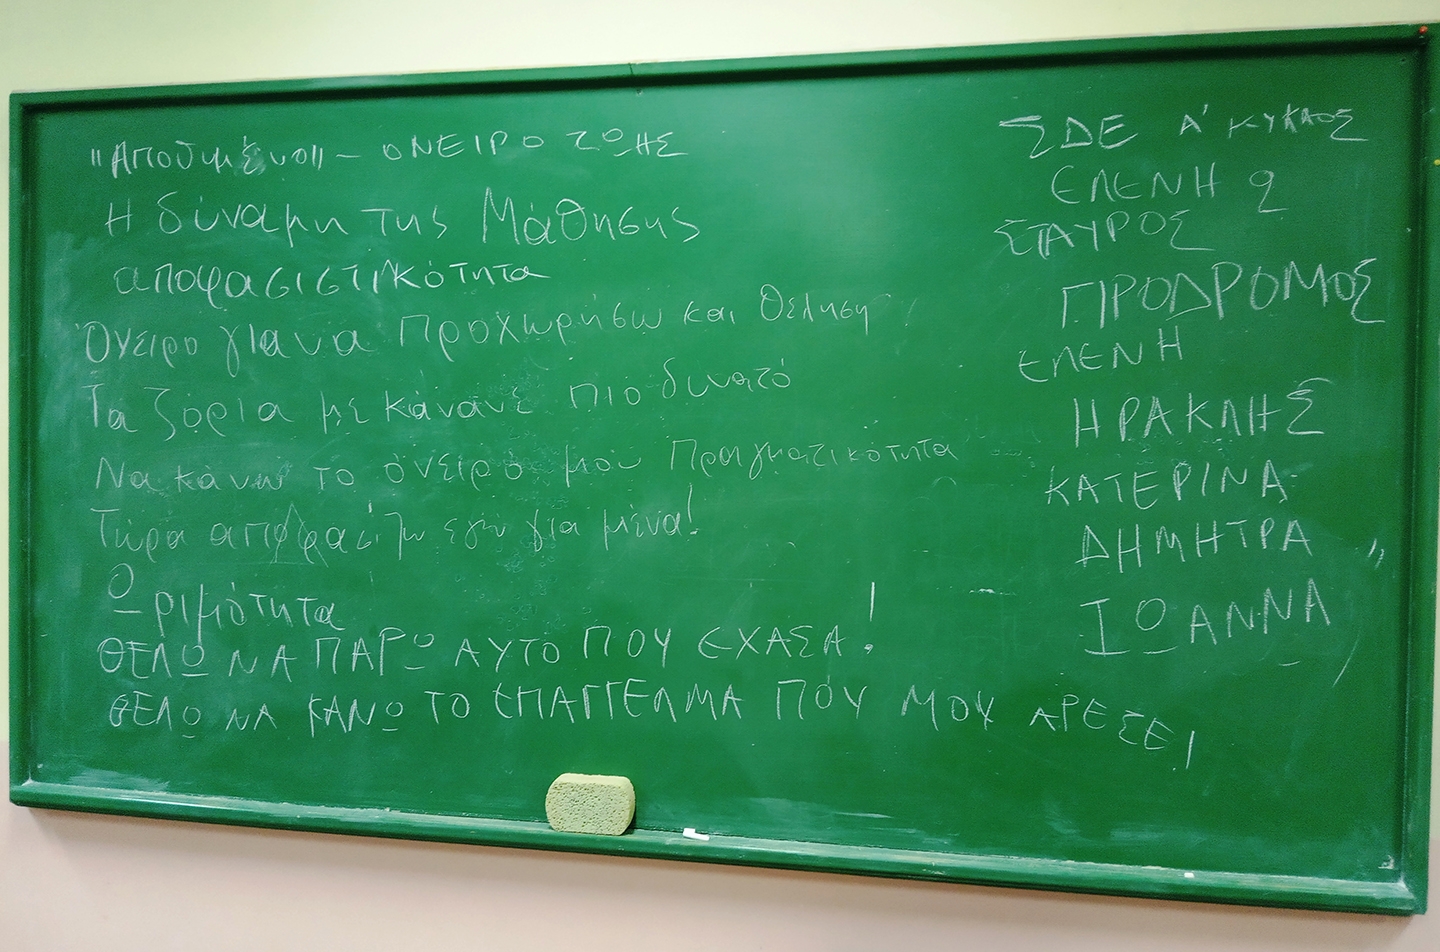 "Αποθυμένο" - ΟΝΕΙΡΟ ΖΩΗΣ
Η δύναμη της Μάθησης
αποφασιστικότητα
Όνειρο για να προχωρήσω και θέληση
Τα ζόρια με κάνανε πιο δυνατό
Να κάνω το όνειρό μου πραγματικότητα
Τώρα αποφασίζω εγώ για μένα!
Ωριμότητα
ΘΕΛΩ ΝΑ ΠΑΡΩ ΑΥΤΟ ΠΟΥ ΕΧΑΣΑ!
ΘΕΛΩ ΝΑ ΚΑΝΩ ΤΟ ΕΠΑΓΓΕΛΜΑ ΠΟΥ ΜΟΥ ΑΡΕΣΕΙ
ΣΔΕ Α' ΚΥΚΛΟΣ
ΕΛΕΝΗ 2
ΣΤΑΥΡΟΣ
ΠΡΟΔΡΟΜΟΣ
ΕΛΕΝΗ
ΗΡΑΚΛΗΣ
ΚΑΤΕΡΙΝΑ
ΔΗΜΗΤΡΑ
ΙΩΑΝΝΑ